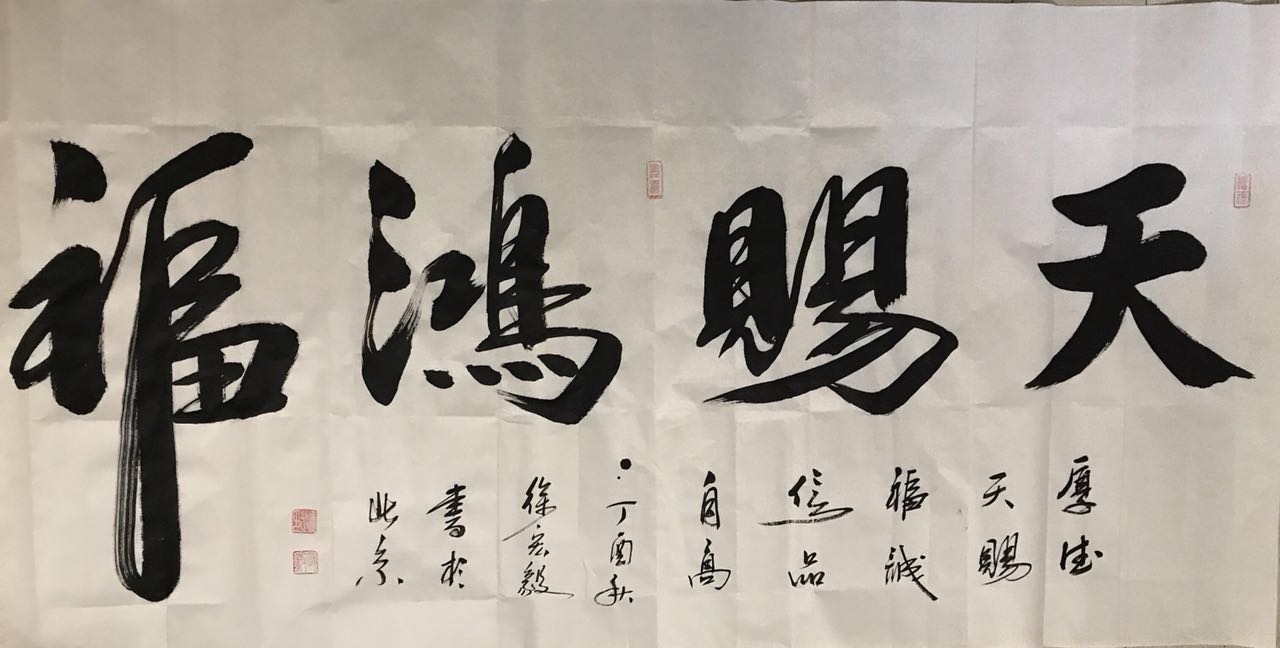 天賜鴻福
厚德
天賜
福誠
信品
自高
丁酉秋
徐宏毅
書於
北京